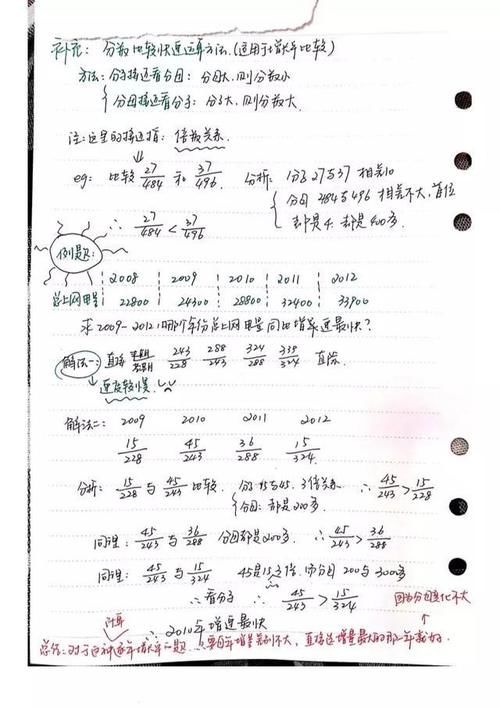 补充: 分数比较快速运算方法.(适用于增长率比较)
方法: 分子接近看分母: 分母大,则分数小
分母接近看分子: 分子大,则分数大.
注:这里的接近指: 倍数关系.
eg: 比较 27/484 和 37/496 分析: 分子27与37 相差10
分母 484与496 相差不大,首位
都是4. 都是400多.
∴ 27/484 < 37/496
例题:
2008 2009 2010 2011 2012
总上网用量 22800 24300 28800 32400 33900
求2009-2012,哪个年份总上网用量同比增速最快?
解法一: 直接 243/228 288/243 324/288 339/324 直除
速度较慢.
解法二: 2009 2010 2011 2012
15/228 45/243 36/288 15/324.
分析: 15/228 与 45/243 比较. 分子15与45. 3倍关系 ∴ 45/243 > 15/228
分母: 都是200多.
同理: 45/243 与 36/288 分母都是200多. ∴ 45/243 > 36/288
同理: 45/243 与 15/324 45是15 3倍. 分母 200与300多
∴ 看分子 ∴ 45/243 > 15/324 因为分母变化不大
∴ 2010年增速最快
总结: 对于 增长率问题. 只要 年增量差别不大, 直接选增量最大的那一年就好.